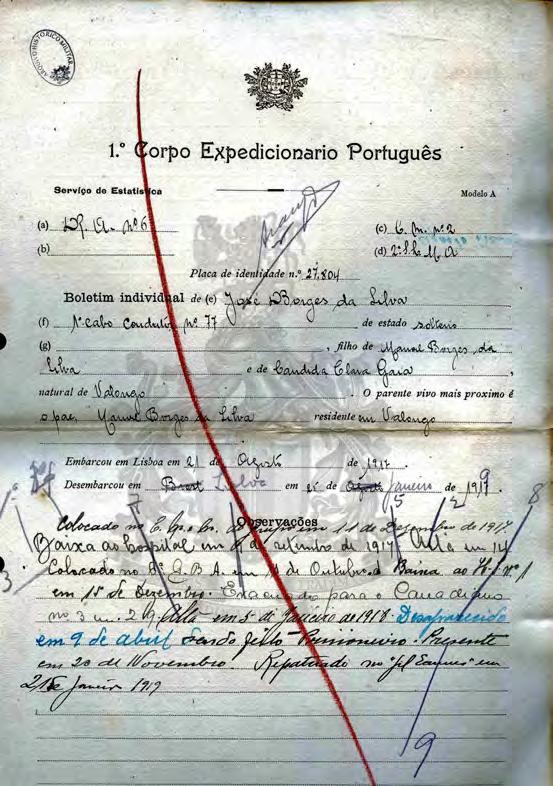 ARQUIVO HISTORICO MILITAR
1.º Corpo Expedicionario Português
Serviço de Estatistica
Modelo A
(a) R. A. nº 6 (c) C. M. nº 2
(b) (d)
Placa de identidade n.º 27.804
Boletim individual de (e) José Borges da Silva
(f) 1º cabo condutor nº 77 de estado solteiro
(g) , filho de Manuel Borges da
Silva e de Candida Clara Gaia ,
natural de Valongo . O parente vivo mais proximo é
o pae, Manuel Borges da Silva residente em Valongo
Embarcou em Lisboa em 21 de Agosto de 1917
Desembarcou em Brest Lisboa em 25 de Agosto Janeiro de 1919
1º 7 5 2 8
Observações
Colocado no em 11 de Dezembro de 1917.
Baixa ao hospital em de setembro de 1917 Alta em 14
3
Colocado no B. A. em de Outubro. Baixa ao H. nº 1
em 15 de Dezembro. Evacuado para o Canadiano
nº 3 em 29 Alta em 5 de Janeiro de 1918 Desaparecido
em 9 de abril Sendo feito Prisioneiro. Presente
em 20 de Novembro Repatriado no "Gil Eannes" em
Janeiro 1919
9